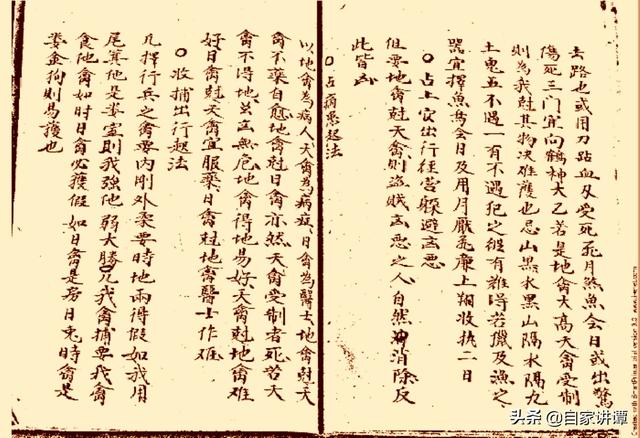 去路也或用刀跕血及受死飛月煞魚會日或出驚
傷死三門宜向鶴神太乙若是地禽大高天禽受制
則為我尅其物决难獲也忌山黑水黑山隔水隔九
土鬼五不遇一有不遇犯之後有难得若獵及漁之
噐宜擇魚會日及用月厭飛廉上朔收执二日
○占上官出行徑营躲避凶惡
但要地禽尅天禽則盜贼凶惡之人自然消除反
此皆凶
○占病患起法
以地禽為病人天禽為病症日禽為醫士地禽尅天
禽不藥自愈地禽尅日禽亦然天禽受制者死若天
禽不得地凶無危地禽得地易好天禽尅地禽难
好日禽尅天禽宜服藥日禽尅地禽醫士作难
○收捕出行起法
凡擇行兵之禽要内剛外柔要時地兩得假如我用
尾箕他是娄室則我強他弱大勝凡我禽捕要我禽
食他禽如時日禽必獲假如日禽是房日兎時禽是
娄金狗則易獲也
头条 @自家讲谭